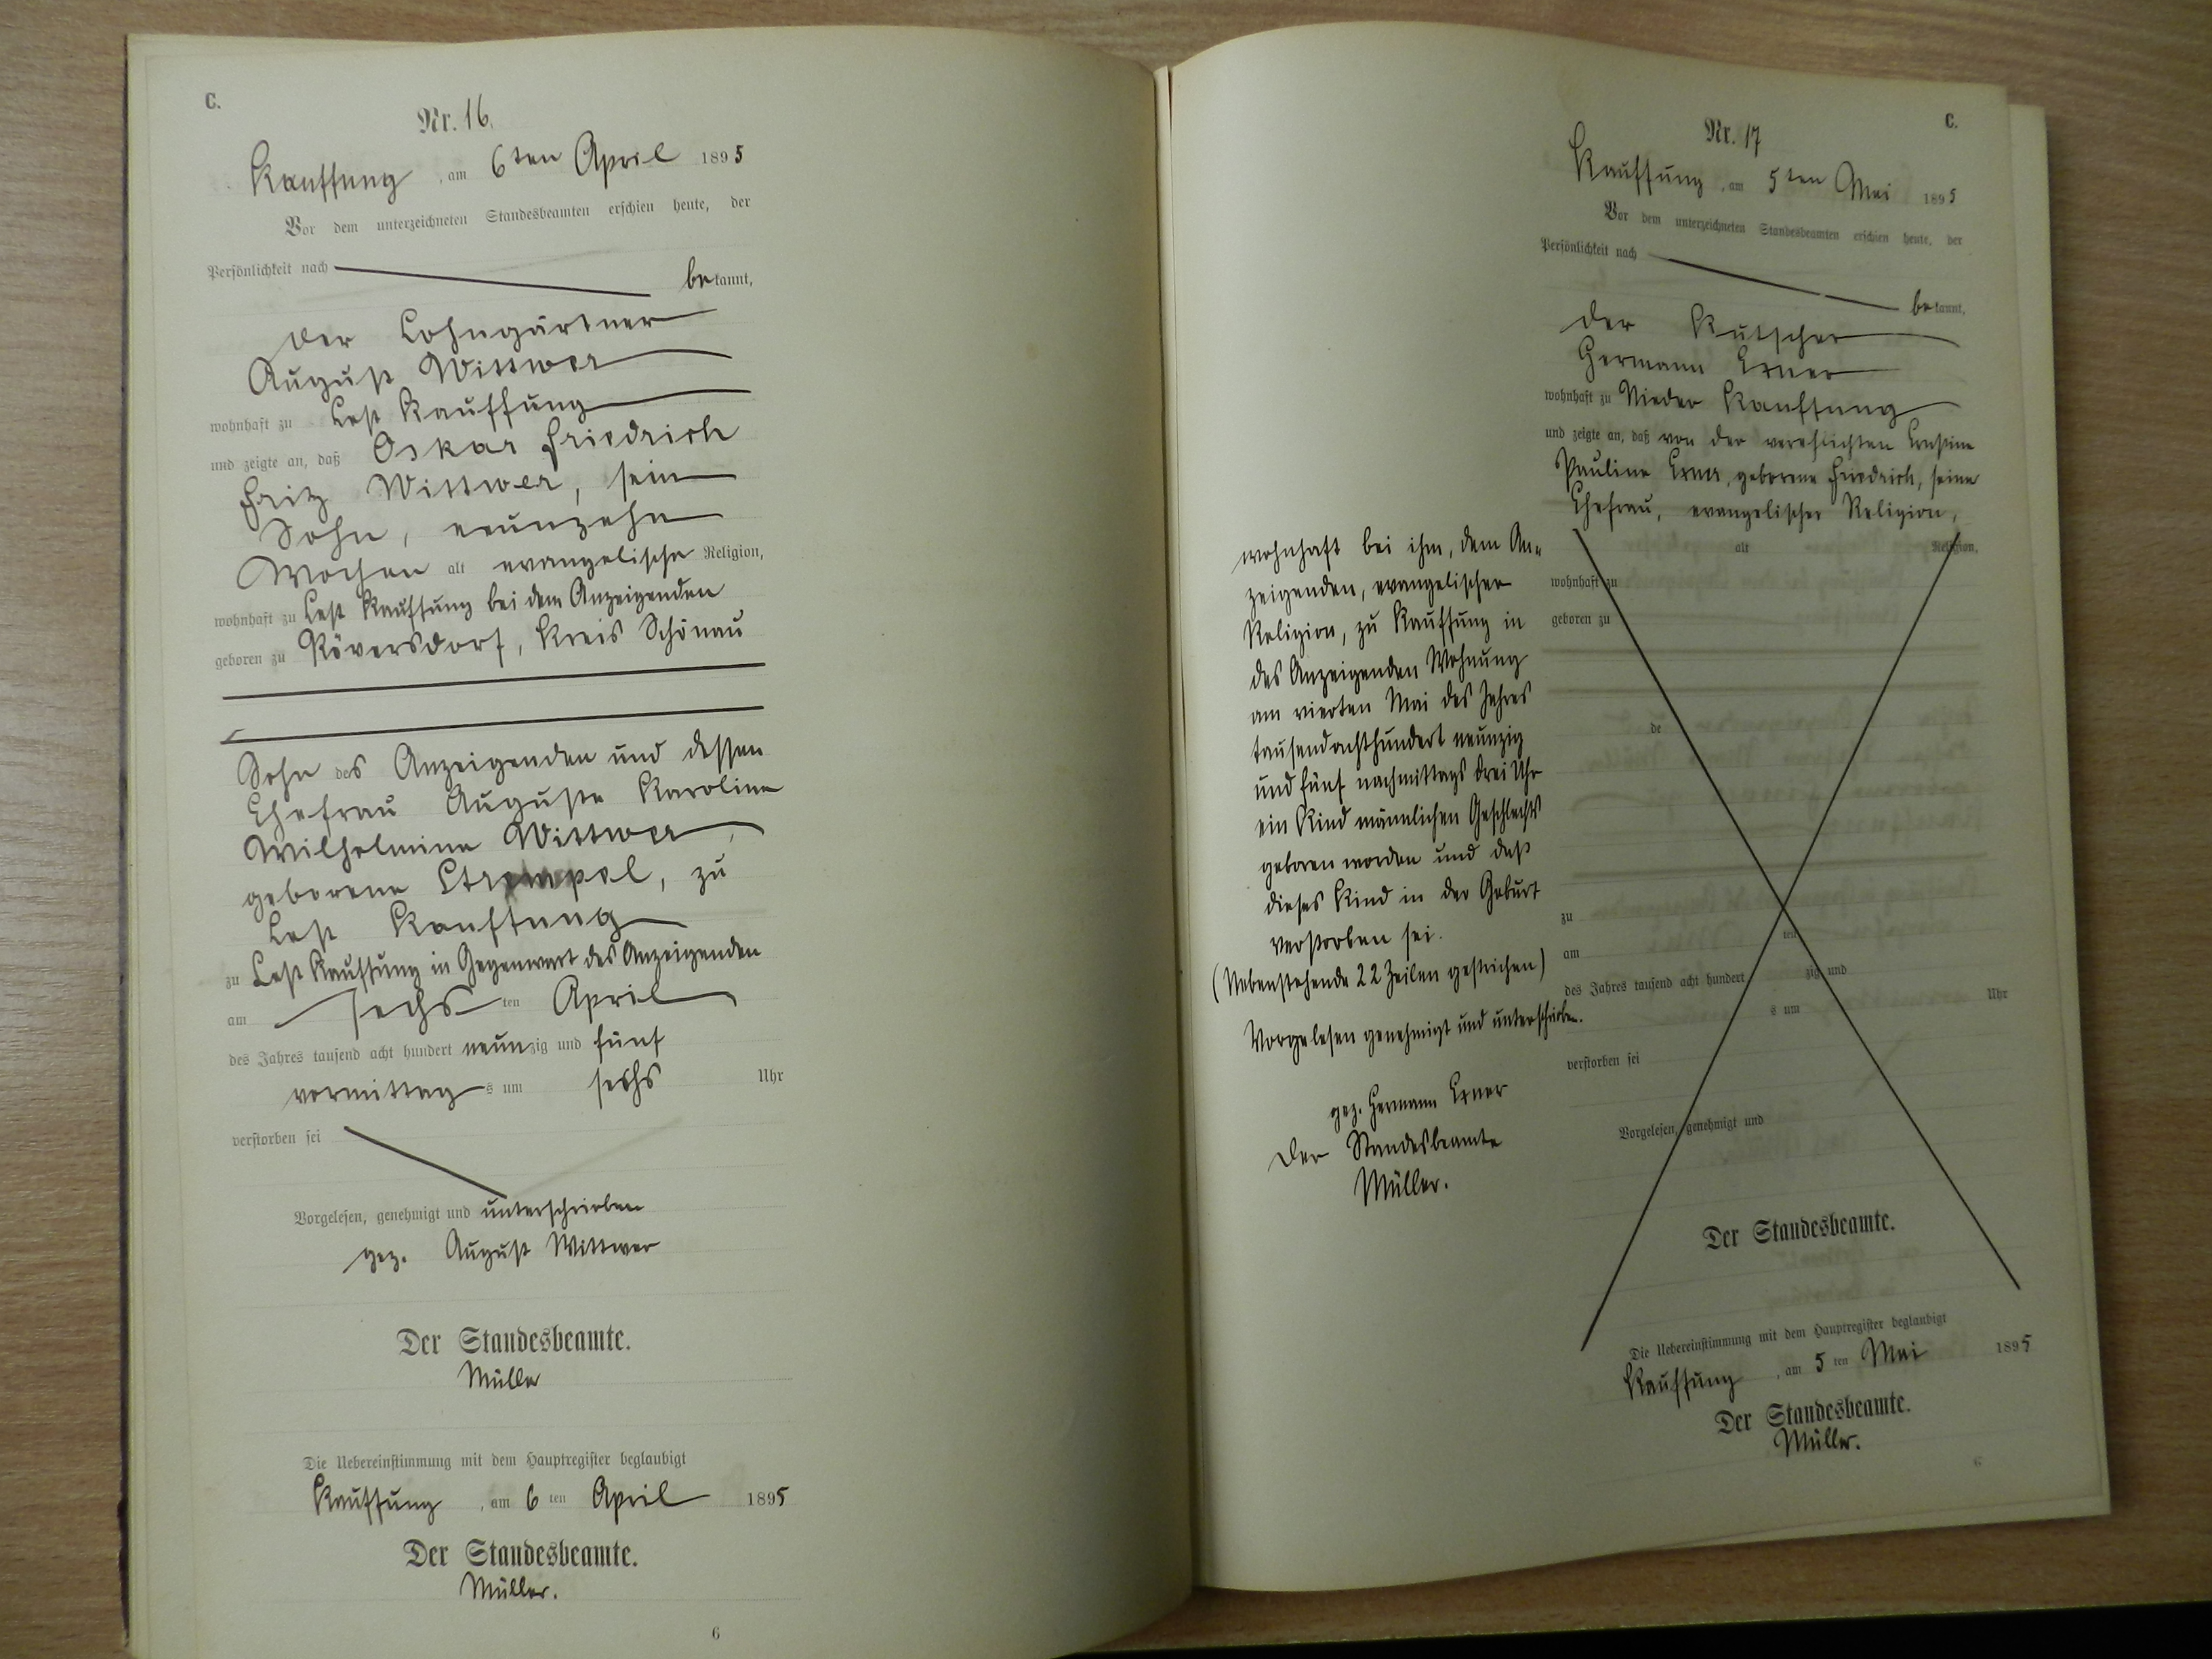 C.
Nr. 16.
Kauffung, am 6ten April 1895
Vor dem unterzeichneten Standesbeamten erschien heute, der
Persönlichkeit nach bekannt,
der Lohngärtner
August Wittwer
wohnhaft zu Lest Kauffung
und zeigte an, daß Oskar Friedrich
Fritz Wittwer, sein
Sohn, neunzehn
Wochen alt evangelische Religion,
wohnhaft zu Lest Kauffung bei dem Anzeigenden
geboren zu Röversdorf, Kreis Schönau
Sohn des Anzeigenden und dessen
Ehefrau Auguste Karoline
Wilhelmine Wittwer,
geborene Strempel, zu
Lest Kauffung
zu Lest Kauffung in Gegenwart des Anzeigenden
am sechsten April
des Jahres tausend acht hundert neunzig und fünf
vormittags um sechs Uhr
verstorben sei
Vorgelesen, genehmigt und unterschrieben
gez. August Wittwer
Der Standesbeamte.
Müller
Die Uebereinstimmung mit dem Hauptregister beglaubigt
Kauffung, am 6ten April 1895
Der Standesbeamte.
Müller.
6
C.
Nr. 17
Kauffung, am 5ten Mai 1895
Vor dem unterzeichneten Standesbeamten erschien heute, der
Persönlichkeit nach bekannt,
der Kutscher
Hermann Exner
wohnhaft zu Nieder Kauffung
und zeigte an, daß von der verehlichten Ernstine
Pauline Exner, geborene Friedrich, seine
Ehefrau, evangelischer Religion,
alt Religion,
wohnhaft zu
geboren zu
de
zu
am ten
des Jahres tausend acht hundert zig und
s um Uhr
verstorben sei
Vorgelesen, genehmigt und
wohnhaft bei ihm, dem An-
zeigenden, evangelischer
Religion, zu Kauffung in
des Anzeigenden Wohnung
am vierten Mai des Jahres
tausendachthundert neunzig
und fünf nachmittags drei Uhr
ein Kind männlichen Geschlechts
geboren worden und daß
dieses Kind in der Geburt
verstorben sei.
(Nebenstehende 22 Zeilen gestrichen)
Vorgelesen genehmigt und unterschrieben.
gez. Hermann Exner
Der Standesbeamte
Müller.
Der Standesbeamte.
Die Uebereinstimmung mit dem Hauptregister beglaubigt
Kauffung, am 5ten Mai 1895
Der Standesbeamte.
Müller.
6